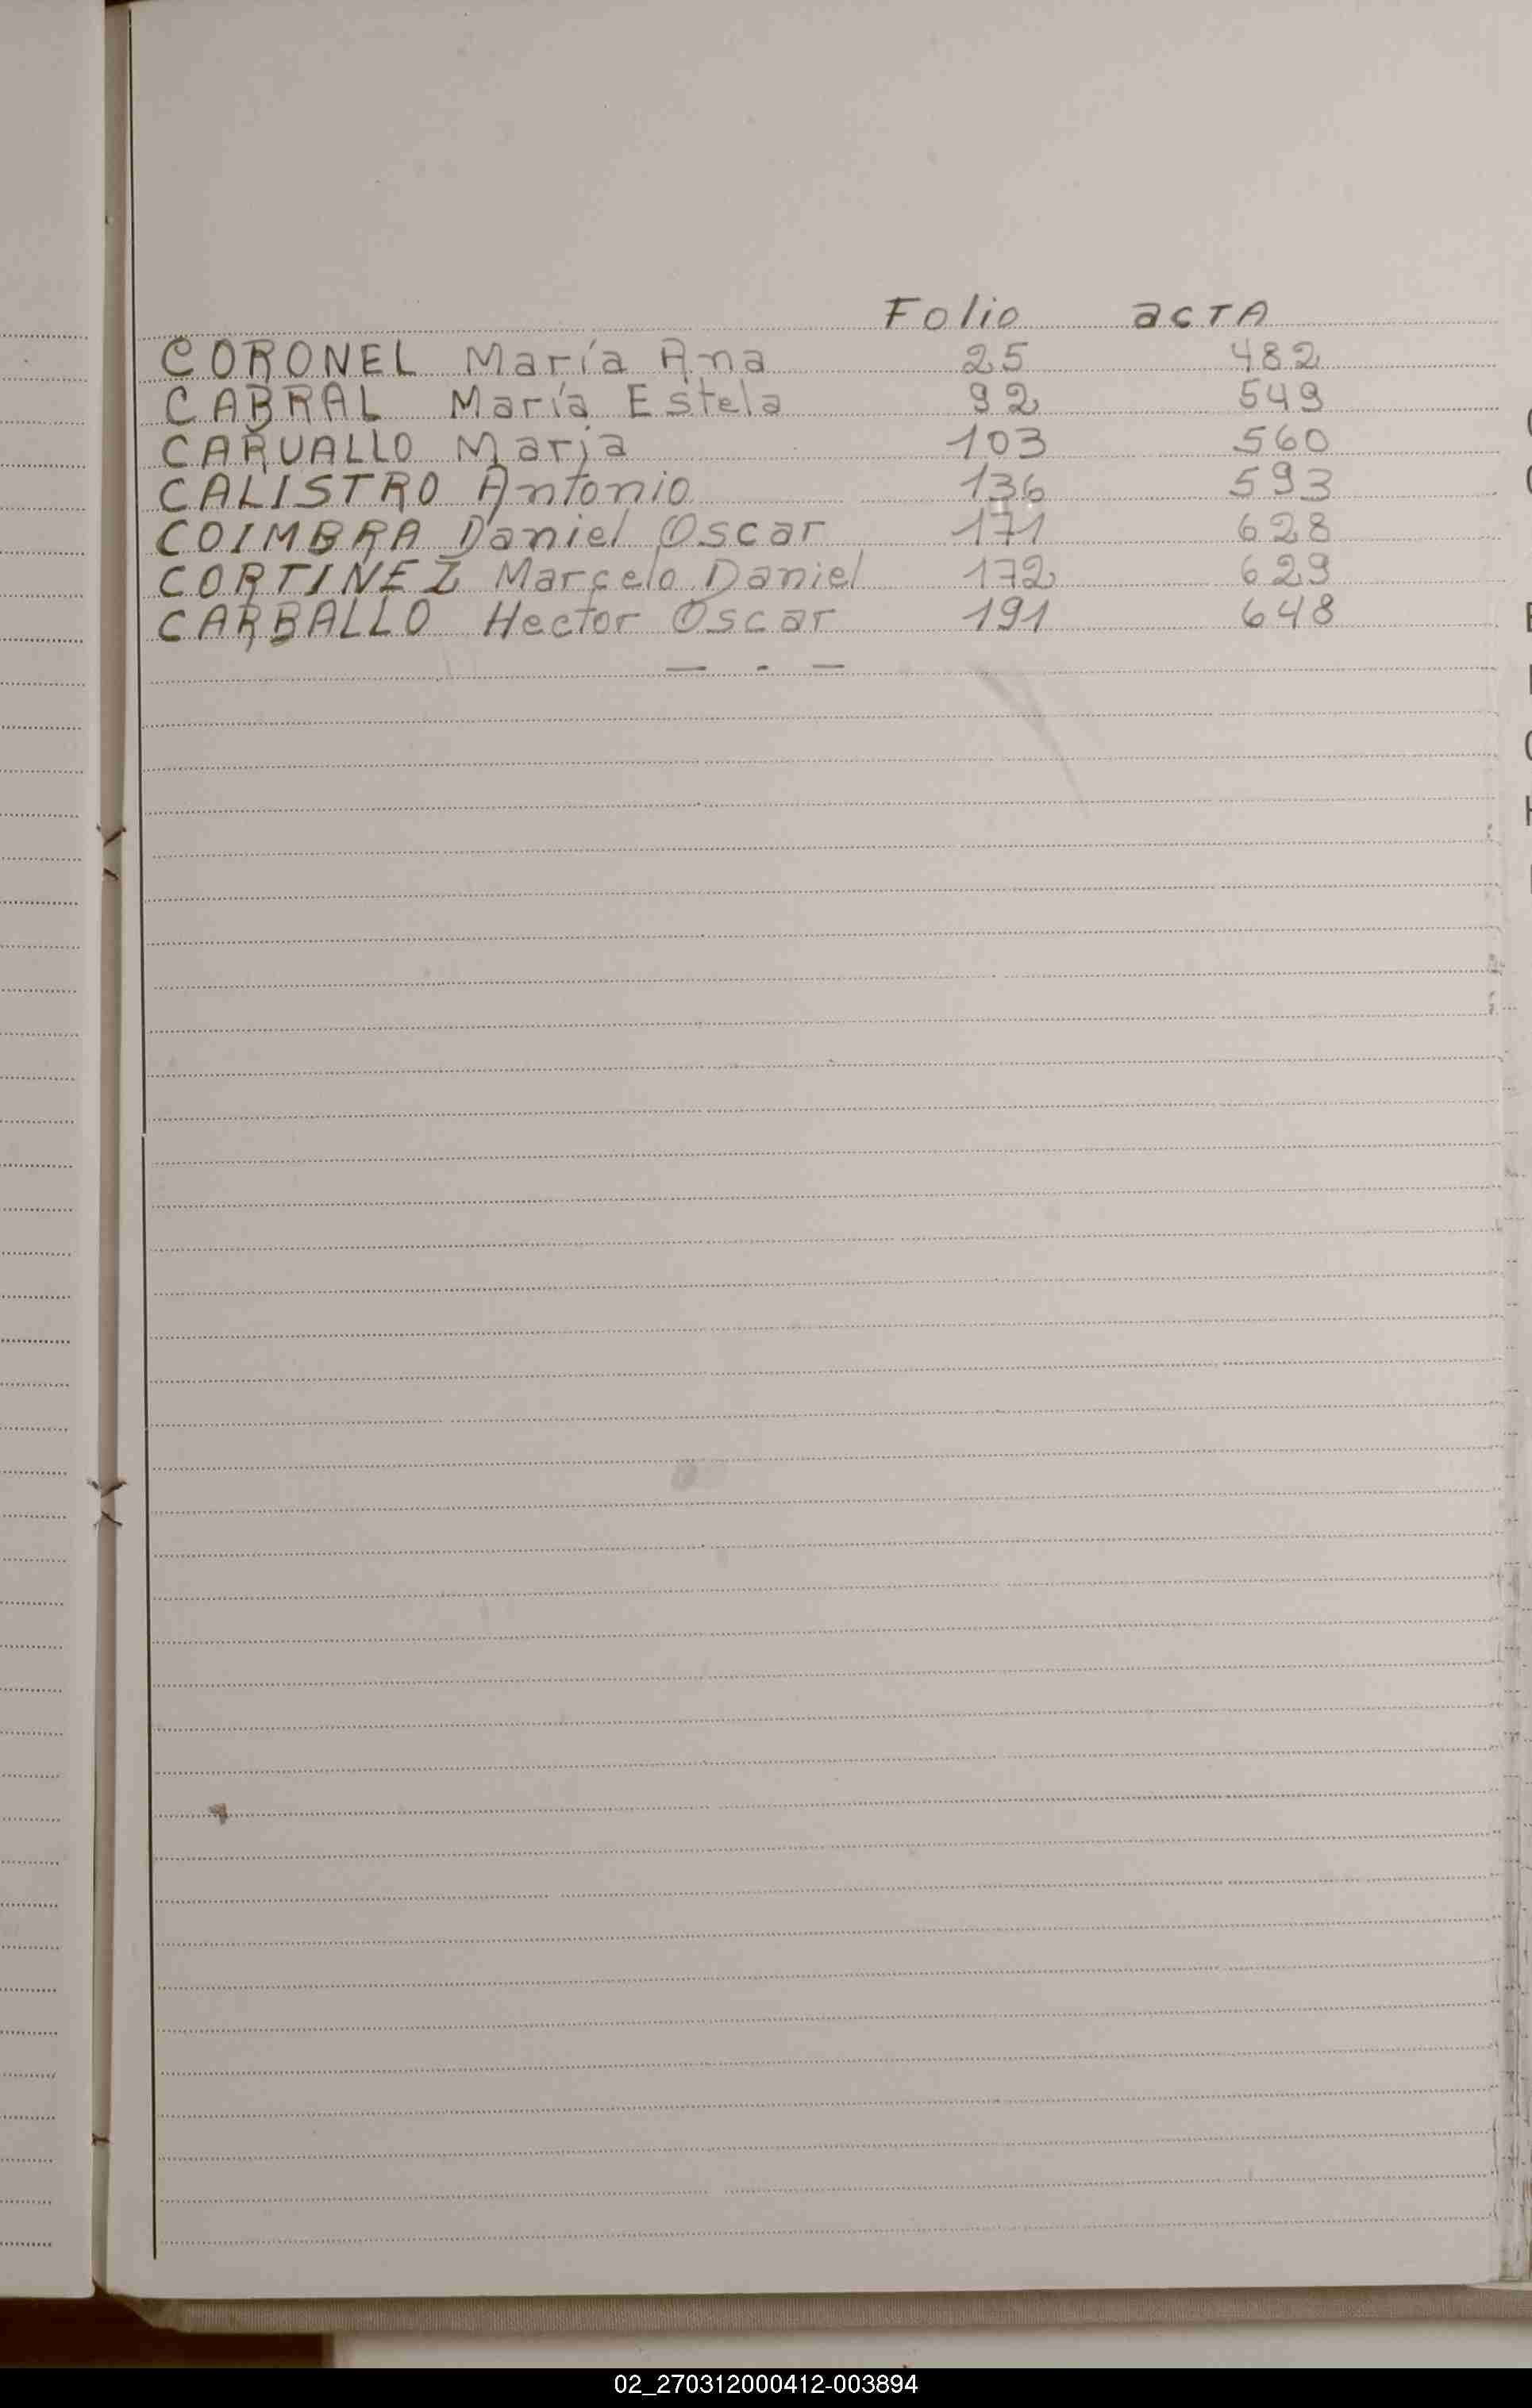 Folio acTA
CORONEL María Ana 25 482
CABRAL María Estela 92 549
CARVALLO Maria 103 560
CALISTRO Antonio 136 593
COIMBRA Daniel Oscar 171 628
CORTINEZ Marcelo Daniel 172 629
CARBALLO Hector Oscar 191 648
— . —
02_270312000412-003894